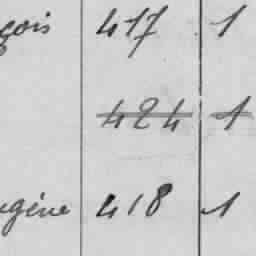 çois 417 1
424 1
ugène 418 1